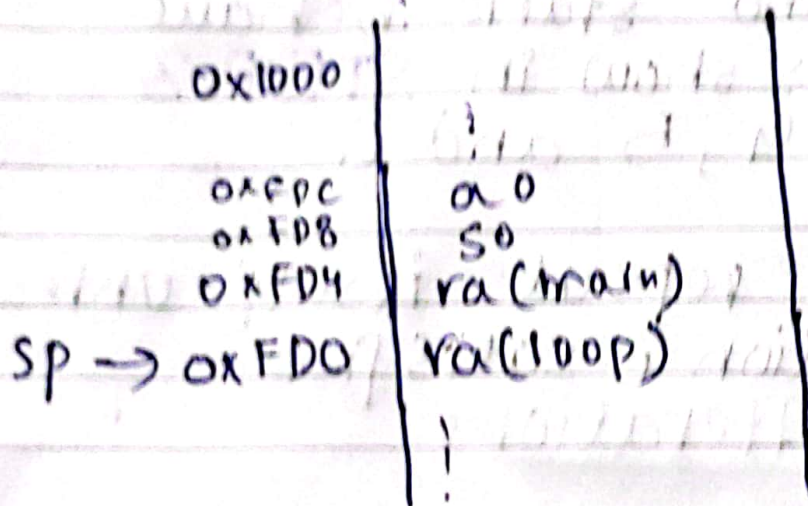 0x1000
⋮
0xFDC a0
0xFD8 s0
0xFD4 ra (main)
sp → 0xFD0 ra (loop)
⋮